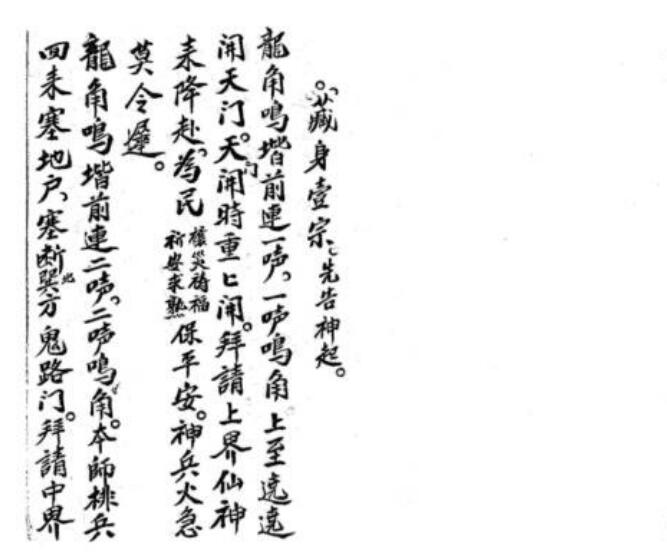 藏身壹宗、先告神起。
龍角鳴堦前連一声、一声鳴角上至遶遶
開天门。天门開時重匕開。拜請上界仙神
来降赴、為民禳災禱福祈安求熟保平安。神兵火急
莫令遲。
龍角鳴堦前連二声、二声鳴角。本師排兵
回来塞地户、塞断巽北方鬼路门。拜請中界